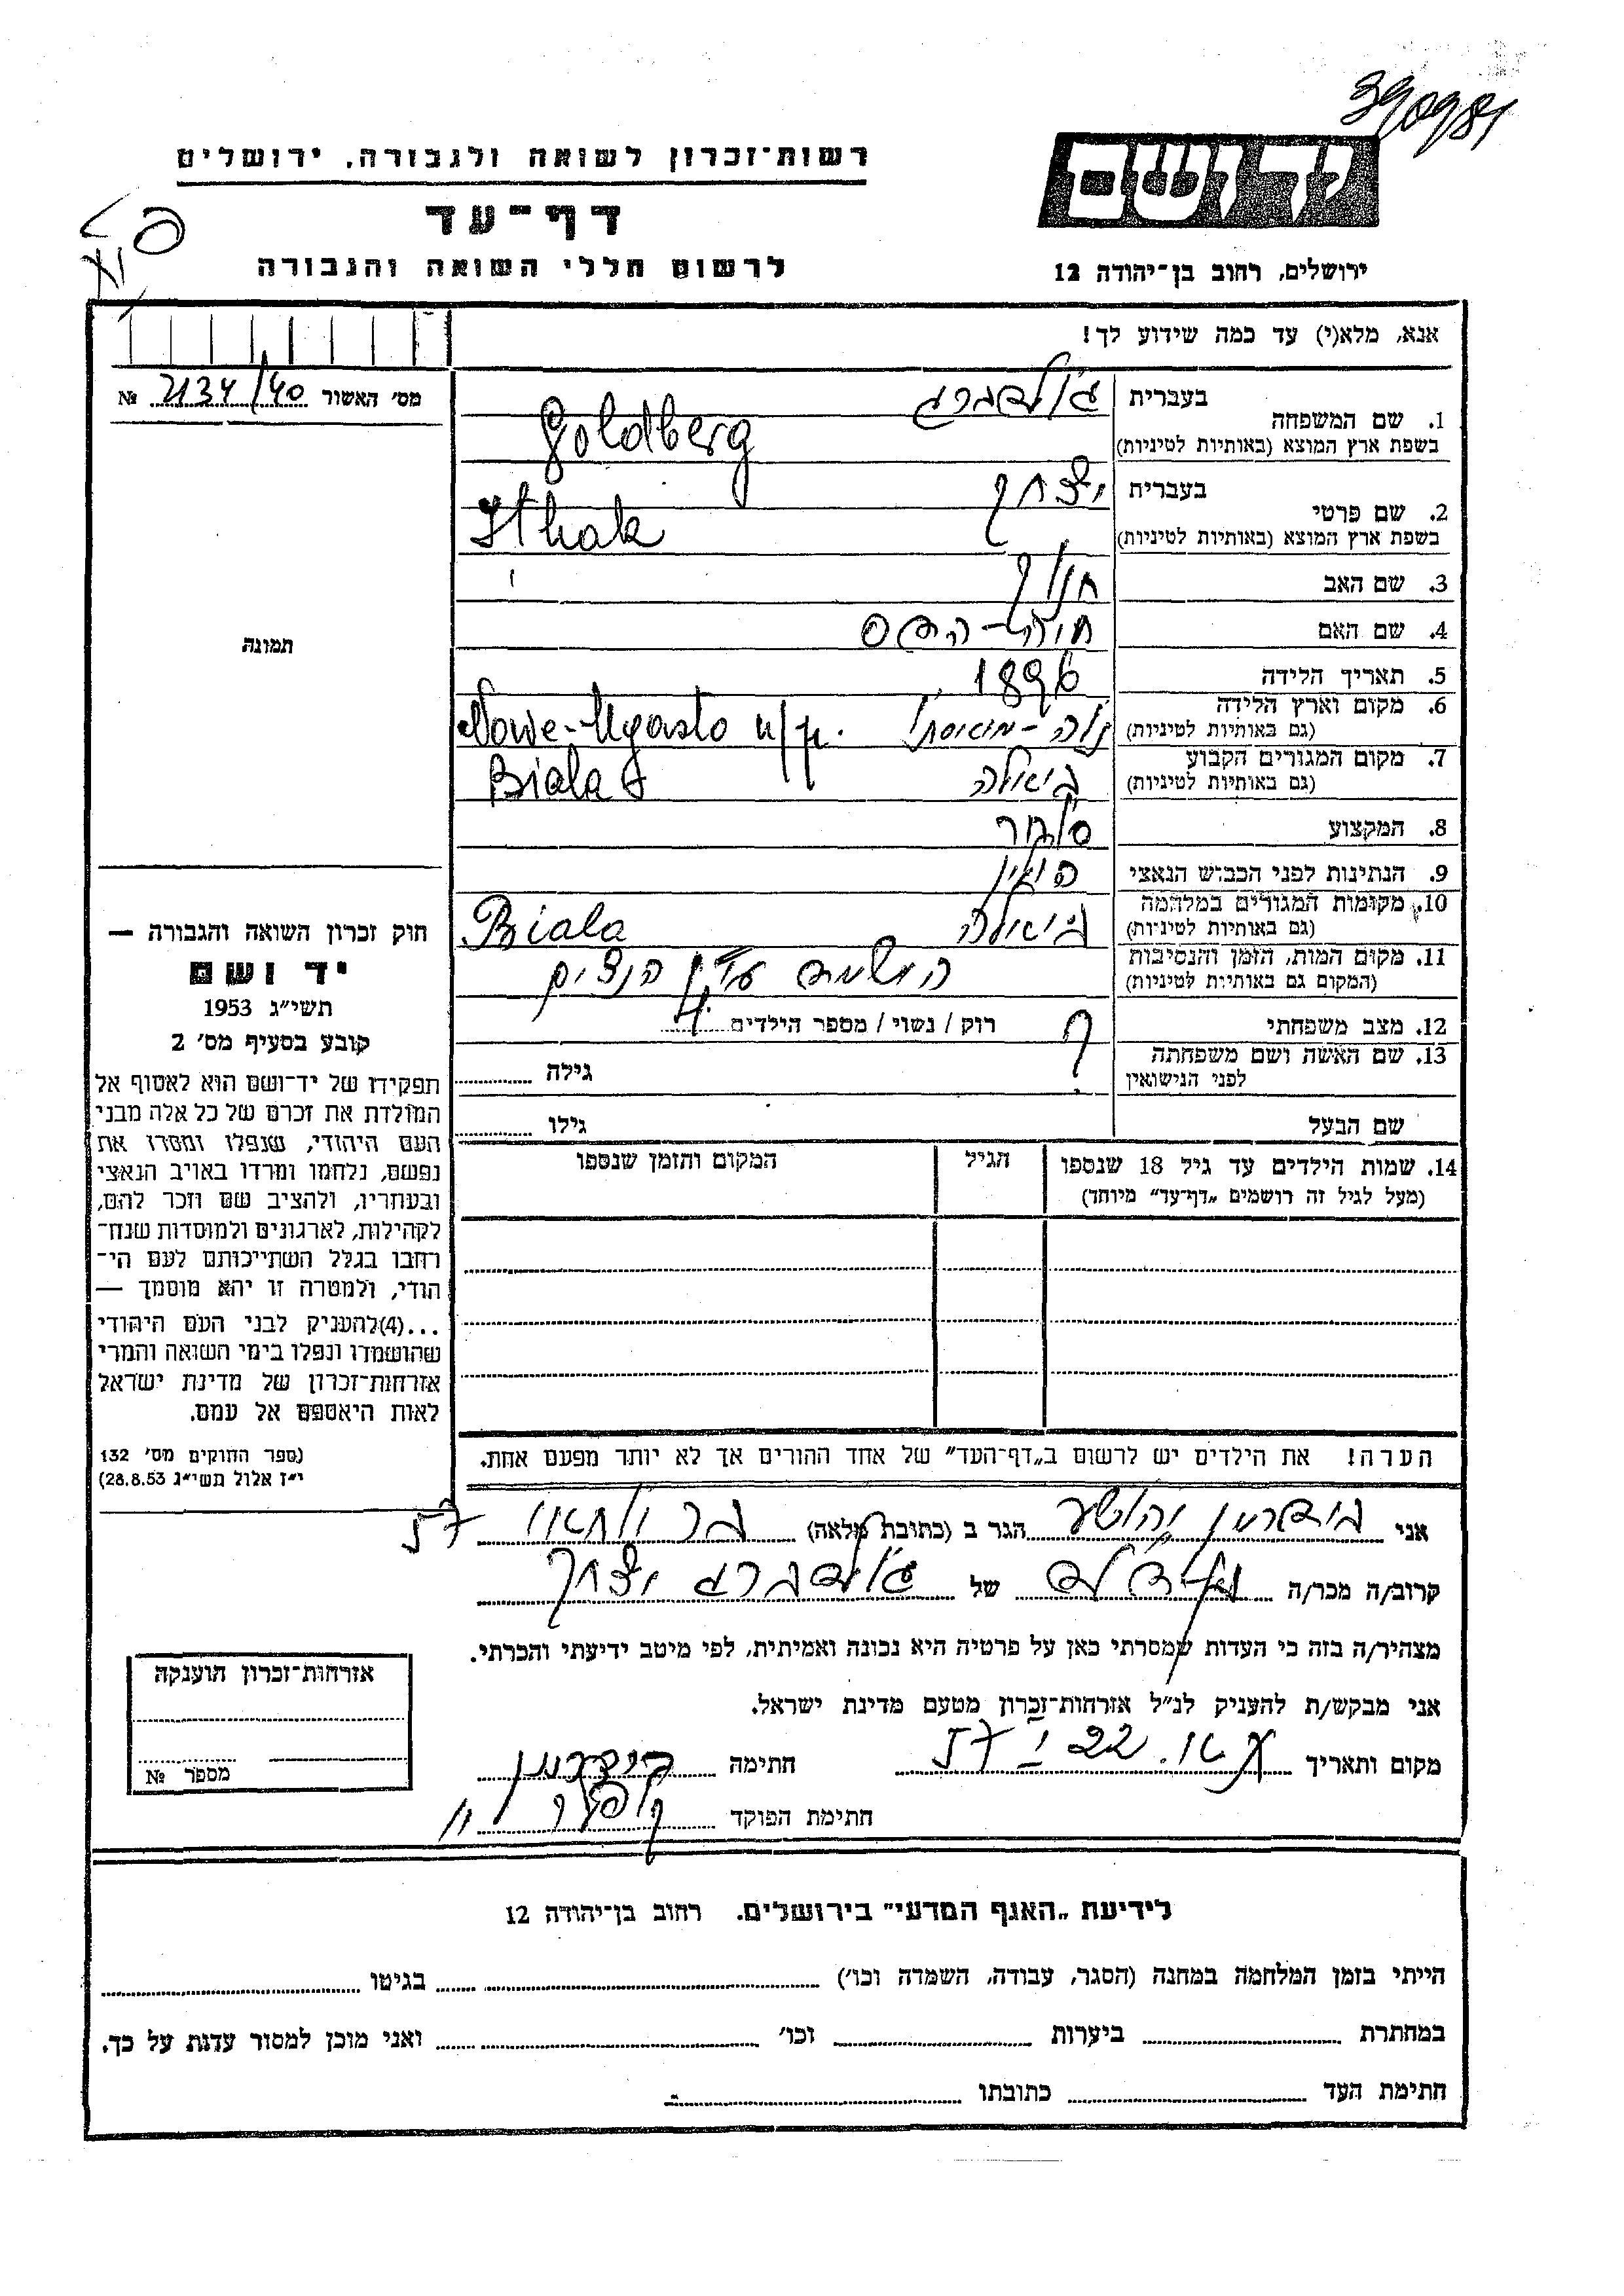 390981
רשות־זכרון לשואה ולגבורה, ירושלים
דף־עד
לרשום חללי השואה והגבורה
יד ושם
ירושלים, רחוב בן־יהודה 12
אנא, מלא(י) עד כמה שידוע לך!
מס׳ האשור 2134/40 №
תמונה
1. שם המשפחה
בעברית גולדברג
בשפת ארץ המוצא (באותיות לטיניות) Goldberg
2. שם פרטי
בעברית יצחק
בשפת ארץ המוצא (באותיות לטיניות) Ithak
3. שם האב חנוך
4. שם האם חוה-הדס
5. תאריך הלידה 1896
6. מקום וארץ הלידה
(גם באותיות לטיניות) נובה-מיאסטו Nowe-Myasto n/p.
7. מקום המגורים הקבוע
(גם באותיות לטיניות) ביאלה Biala
8. המקצוע סוחר
9. הנתינות לפני הכבוש הנאצי פולין
10. מקומות המגורים במלחמה
(גם באותיות לטיניות) ביאלה Biala
11. מקום המות, הזמן והנסיבות
(המקום גם באותיות לטיניות) הושמד ע״י הנצים
12. מצב משפחתי
רוק / נשוי / מספר הילדים 4
13. שם האשה ושם משפחתה
לפני הנישואין ? גילה
שם הבעל גילו
14. שמות הילדים עד גיל 18 שנספו
(מעל לגיל זה רושמים „דף־עד״ מיוחד)
הגיל
המקום והזמן שנספו
הערה! את הילדים יש לרשום ב„דף־העד״ של אחד ההורים אך לא יותר מפעם אחת.
חוק זכרון השואה והגבורה —
יד ושם
תשי״ג 1953
קובע בסעיף מס׳ 2
תפקידו של יד־ושם הוא לאסוף אל
המולדת את זכרם של כל אלה מבני
העם היהודי, שנפלו ומסרו את
נפשם, נלחמו ומרדו באויב הנאצי
ובעוזריו, ולהציב שם וזכר להם,
לקהילות, לארגונים ולמוסדות שנח־
רחבו בגלל השתייכותם לעם הי־
הודי, ולמטרה זו יהא מוסמך —
...(4)להעניק לבני העם היהודי
שהושמדו ונפלו בימי השואה והמרי
אזרחות־זכרון של מדינת ישראל
לאות היאספם אל עמם.
(ספר החוקים מס׳ 132
י״ז אלול תשי״ג 28.8.53)
אני יהושע הגר ב (כתובת מלאה)
קרוב/ה מכר/ה של גולדברג יצחק
מצהיר/ה בזה כי העדות שמסרתי כאן על פרטיה היא נכונה ואמיתית, לפי מיטב ידיעתי והכרתי.
אני מבקש/ת להעניק לנ״ל אזרחות־זכרון מטעם מדינת ישראל.
מקום ותאריך 22 57 חתימה
חתימת הפוקד
אזרחות־זכרון הוענקה
מספר №
לידיעת „האגף המדעי״ בירושלים, רחוב בן־יהודה 12
הייתי בזמן המלחמה במחנה (הסגר, עבודה, השמדה וכו׳) בגיטו
במחתרת ביערות וכו׳ ואני מוכן למסור עדות על כך.
חתימת העד כתובתו